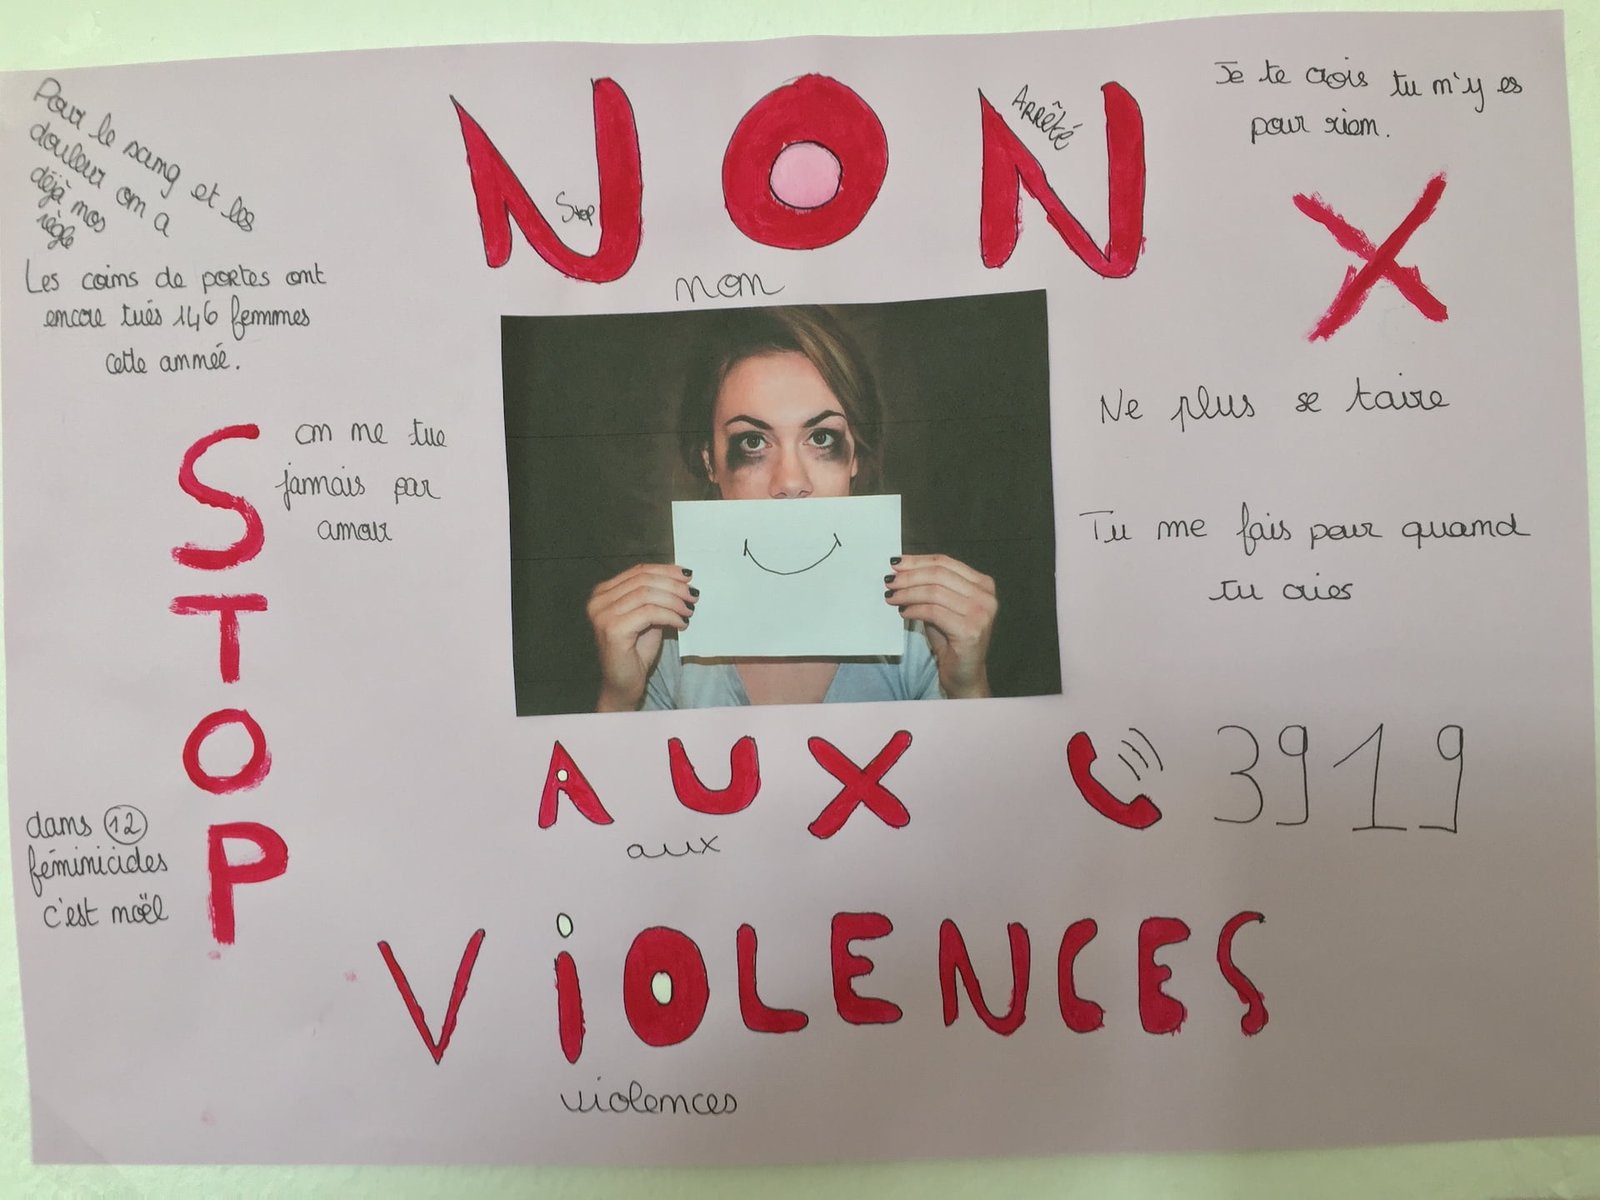 Pour le sang et les
douleur on a
déjà nos
règle
Les coins de portes ont
encore tués 146 femmes
cette année.
NON
Stop
ARRÊTÉ
non
Je te crois tu m'y es
pour rien.
X
STOP
on ne tue
jamais par
amour
Ne plus se taire
Tu me fais peur quand
tu cries
AUX
aux
3919
dans 12
féminicides
c'est noël
ViOLENCES
violences